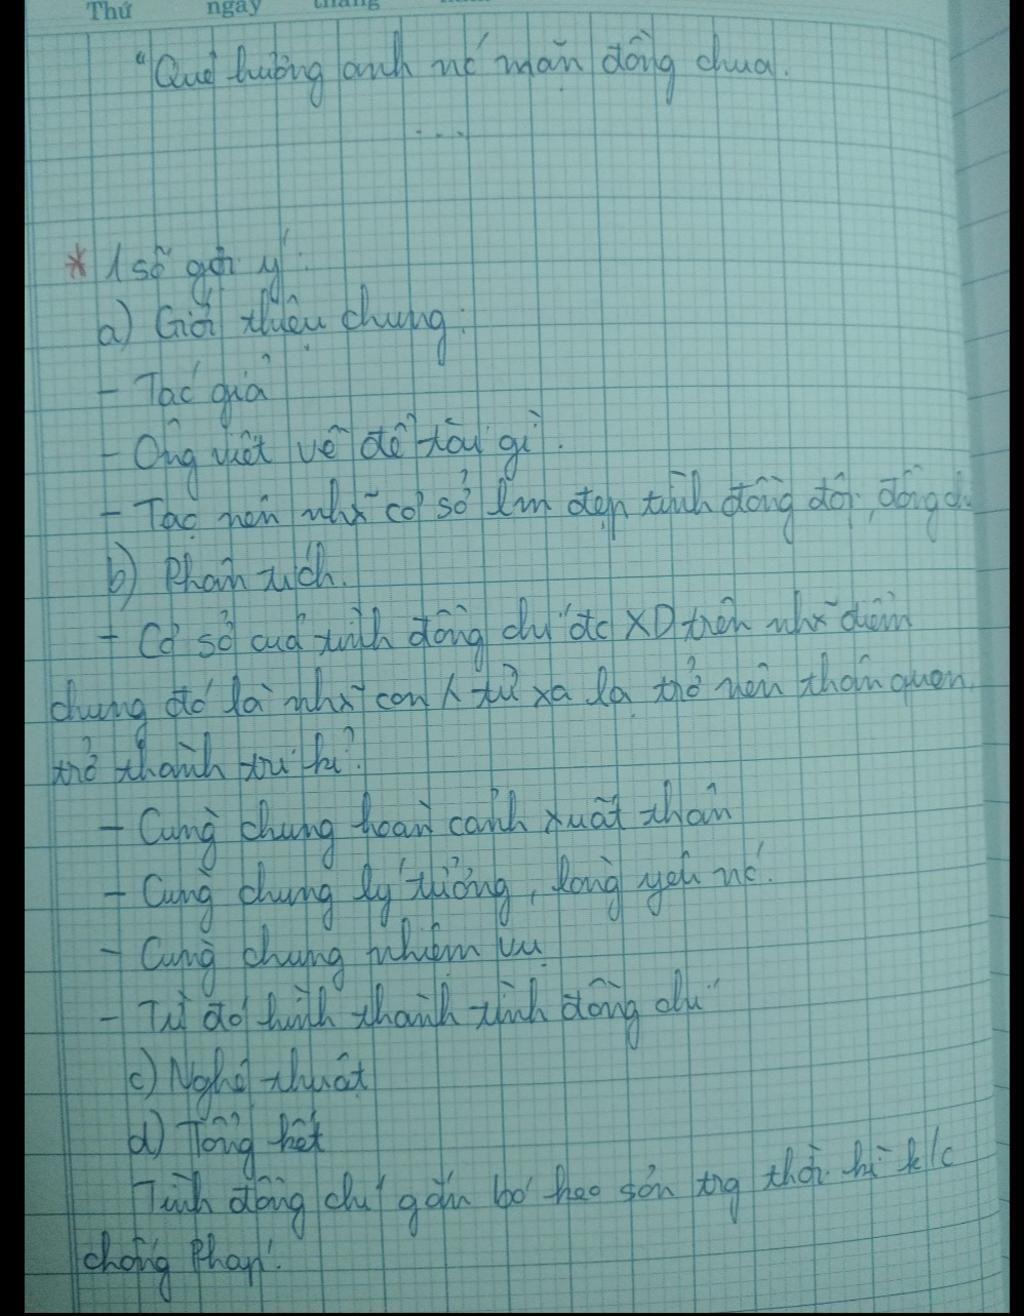 Thứ ngày tháng năm
"Quê hương anh nc mặn đồng chua.
....
* 1 số gợi ý:
a) Giới thiệu chung:
- Tác giả
- Ông viết về đề tài gì.
- Tạo nên nhx cơ sở làm đẹp tình đồng đội, đồng ch
b) Phân tích.
- Cơ sở của tình đồng chí đc XD trên nhx điểm
chung đó là nhx con từ xa lạ trở nên thân quen.
trở thành tri kỉ.
- Cùng chung hoàn cảnh xuất thân
- Cùng chung lý tưởng, lòng yêu nc.
- Cùng chung nhiệm vụ
- Từ đó hình thành tình đồng chí
c) Nghệ thuật
d) Tổng kết
Tình đồng chí gắn bó keo sơn trg thời kì k/c
chống Pháp.